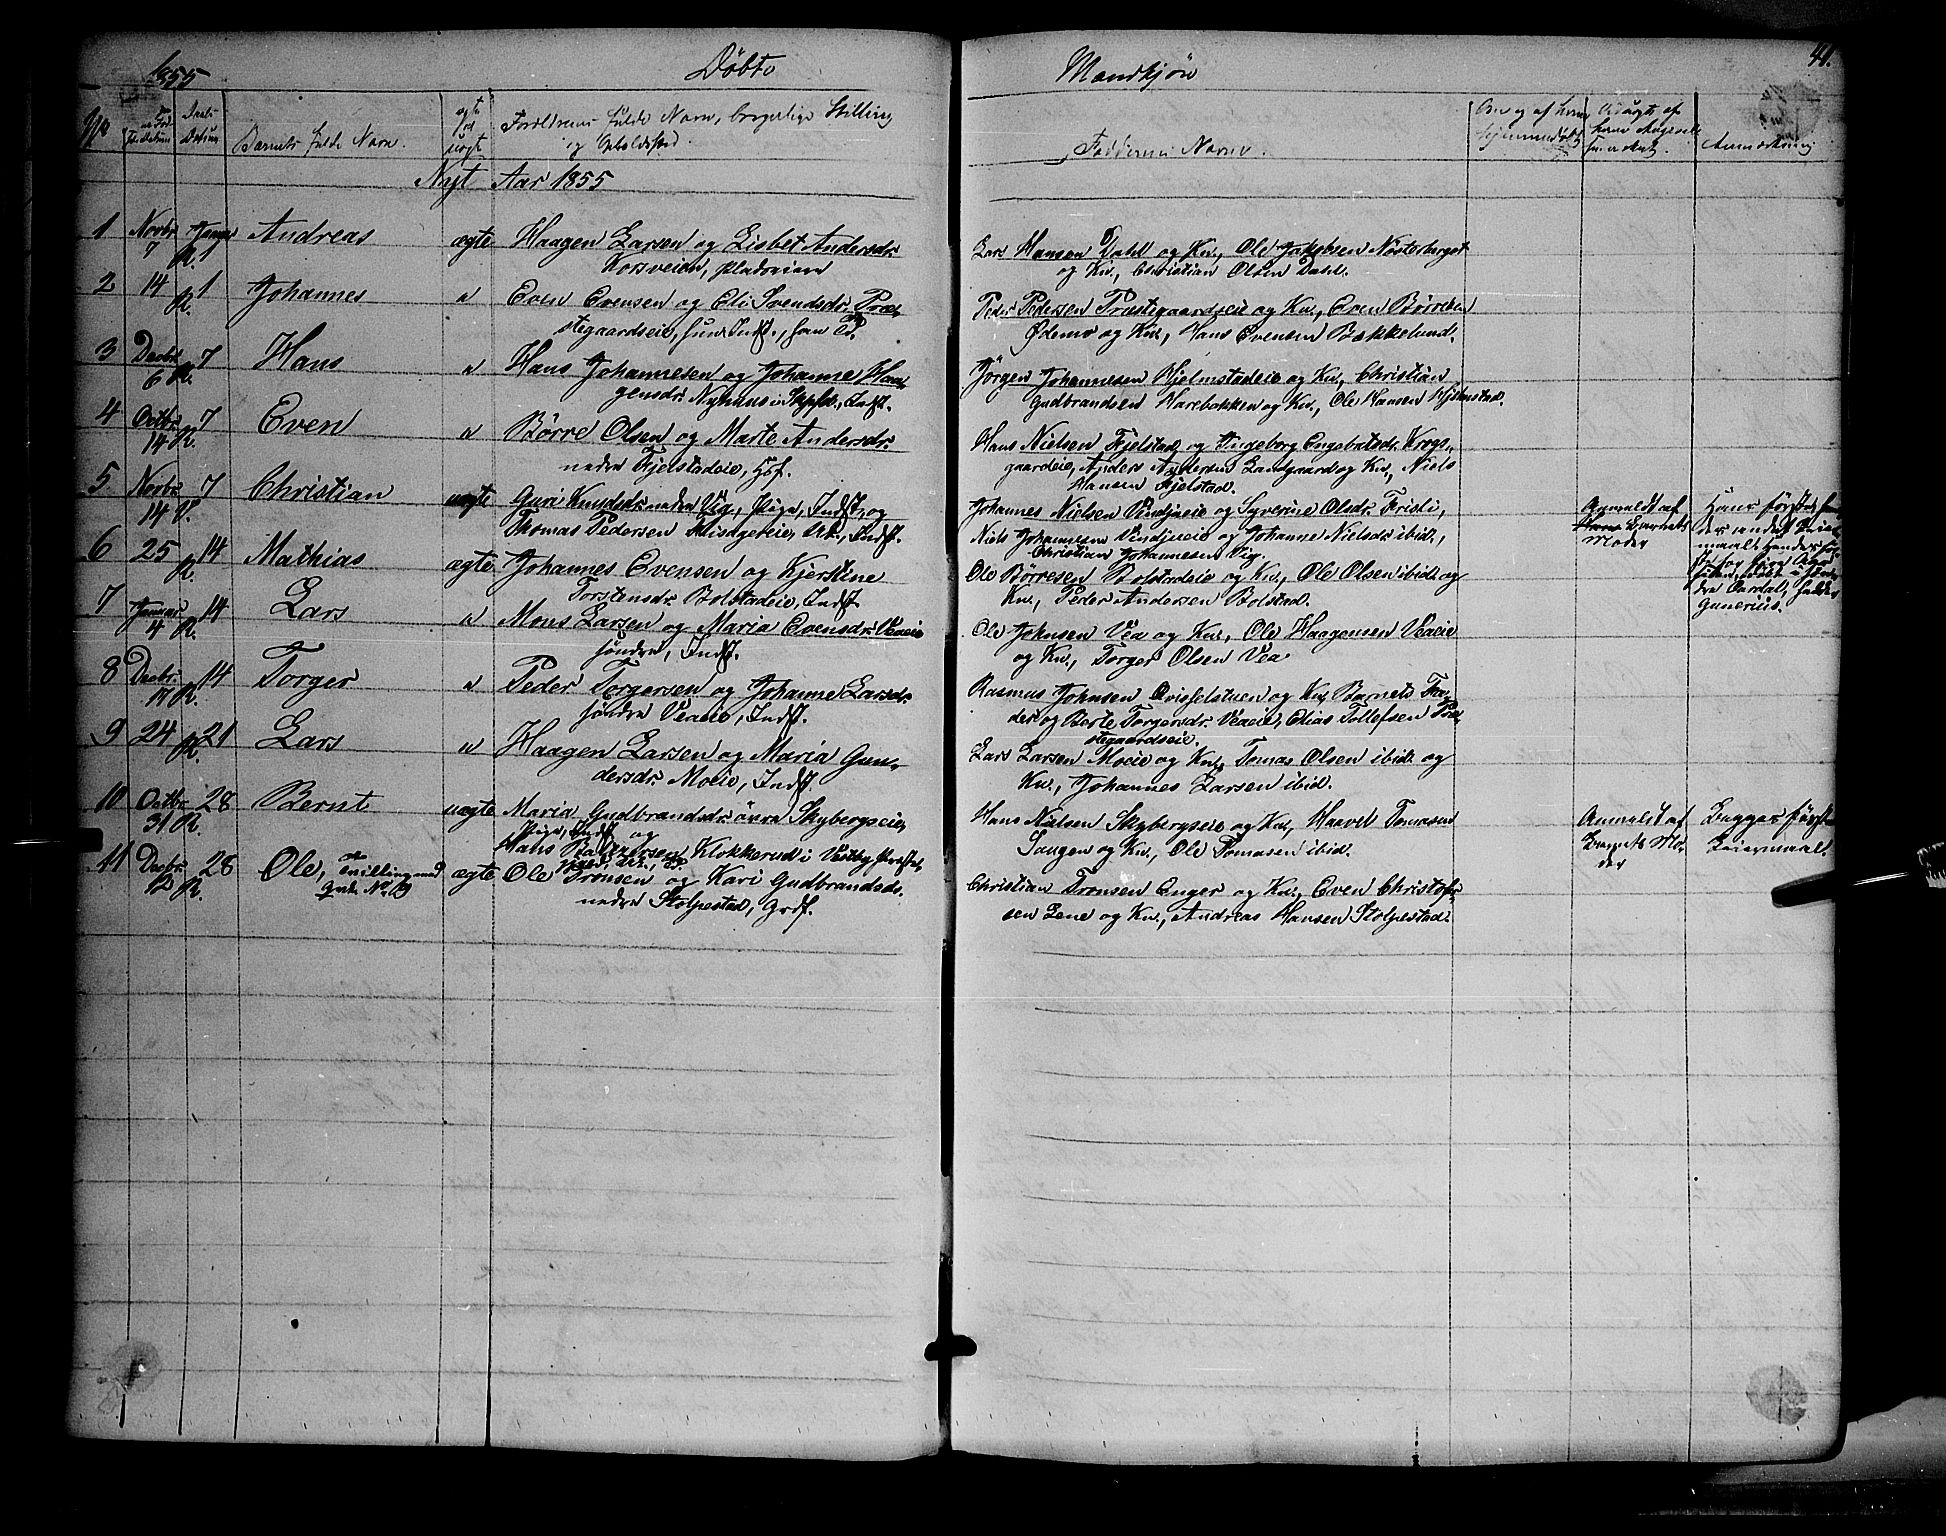 1855 Döbte Mandkjön 41.
No Daabs Datum Barnets fulde Navn. ægte uægte Forældrenes fulde Navn, borgerlige Stilling og Opholdssted. Faddernes Navne. Anmærkning
Nyt Aar 1855
1 Novbr. 7 Januar R. 1 Andreas ægte Haagen Larsen og Lisbet Andersdr.
Korsveien, Pladseiere
Lars Hansen Dahl og Kn., Ole Jakobsen Nösterberget
og Kn., Christian Olsen Dahl.
2 14 R. 1 Johannes " Even Evensen og Eli Svendsdr. Præ-
stegaardseie, hun Indst., han
Peder Pedersen Præstegaardseie og Kn., Even Börresen
Ödemo og Kn., Hans Evensen Bækkelund.
3 Decbr. 6 R. 7 Hans " Hans Johannesen og Johanne Haa-
gensdr. Nyhuus, Indst.
Jörgen Johannesen Hjelmstadeie og Kn., Christian
Gudbrandsen Harebakken og Kn., Ole Hansen Hjelmstad.
4 Octbr. 14 R. 7 Even " Börre Olsen og Marte Andersdr.
nedre Fjelstadeie, Hsf.
Hans Nielsen Fjelstad og Ingeborg Engebretsdr. Krogs-
gaardeie, Anders Andersen Landgaard og Kn., Niels
Hansen Fjelstad.
5 Novbr. 14 V. 7 Christian uægte Guri Knudsdr. nedre Vig, Pige, Indst., og
Thomas Pedersen, Indst.
Johannes Nielsen Vindjueie og Syverine Olsdr. Frisli,
Niels Johannesen Vindjueie og Johanne Nielsdr. ibid.,
Christian Johannesen Vig.
Anmeldt af
Barnets
Moder
Hans förste, hen-
des andet Leier-
maal
Gunerius.
6 25 R. 14 Mathias ægte Johannes Evensen og Kjerstine
Torstensdr. Bolstadeie, Indst.
Ole Börresen Bolstadeie og Kn., Ole Olsen ibid. og
Kn., Peder Andersen Bolstad.
7 Januar 4 R. 14 Lars " Mons Larsen og Maria Evensdr. Veaeie
söndre, Indst.
Ole Johnsen Vea og Kn., Ole Haagensen Veaeie
og Kn., Torger Olsen Vea
8 Decbr. 17 R. 14 Torger " Peder Torgersen og Johanne Larsdr.
söndre Veaeie, Indst.
Rasmus Johnsen Qvislelstuen og Kn., Barnets Fa-
der og Berte Torgersdr. Veaeie, Elias Tollefsen Præ-
stegaardseie.
9 24 R. 21 Lars " Haagen Larsen og Maria Gun-
dersdr. Moeie, Indst.
Lars Larsen Moeie og Kn., Tomas Olsen ibid. og
Kn., Johannes Larsen ibid.
10 Octbr. 31 R. 28 Bernt uægte Maria Gudbrandsdr. övre Skybergseie,
Pige, Indst. og
Hans Klokkerud i Vestby Præst.
Hans Nielsen Skybergseie og Kn., Haavel Tomasen
Saugen og Kn., Ole Tomasen ibid.
Anmeldt af
Barnets Mo-
der
Begges förste
Leiermaal.
11 Decbr. 12 R. 28 Ole, Tvilling med ægte Ole Tronsen og Kari Gudbrandsdr.
nedre Stolpestad, Grdf.
Christian Tronsen Enger og Kn., Even Christofer-
sen Lene og Kn., Andreas Hansen Stolpestad.